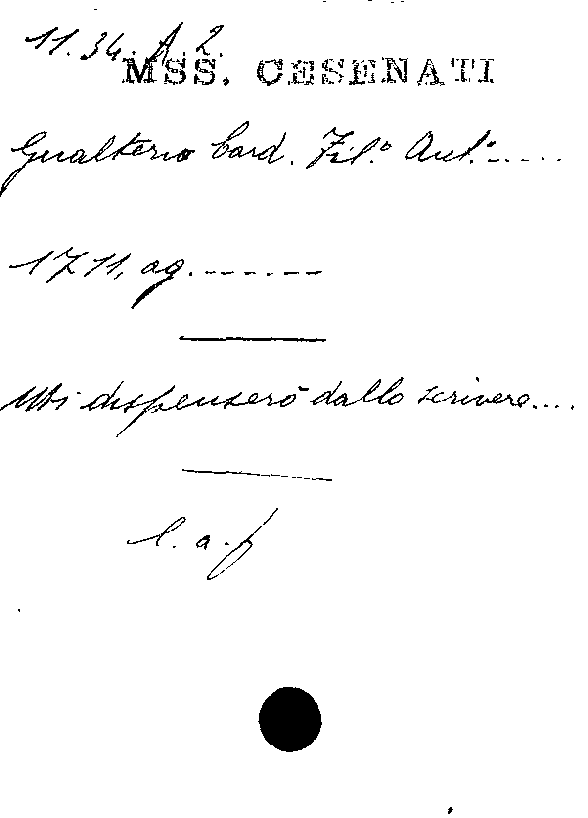 11.34. A. 2.
MSS. CESENATI
Gualterio Card. Fil.º Ant.º.....
1711, ag.------
Mi dispenserò dallo scrivere....
l. a. f